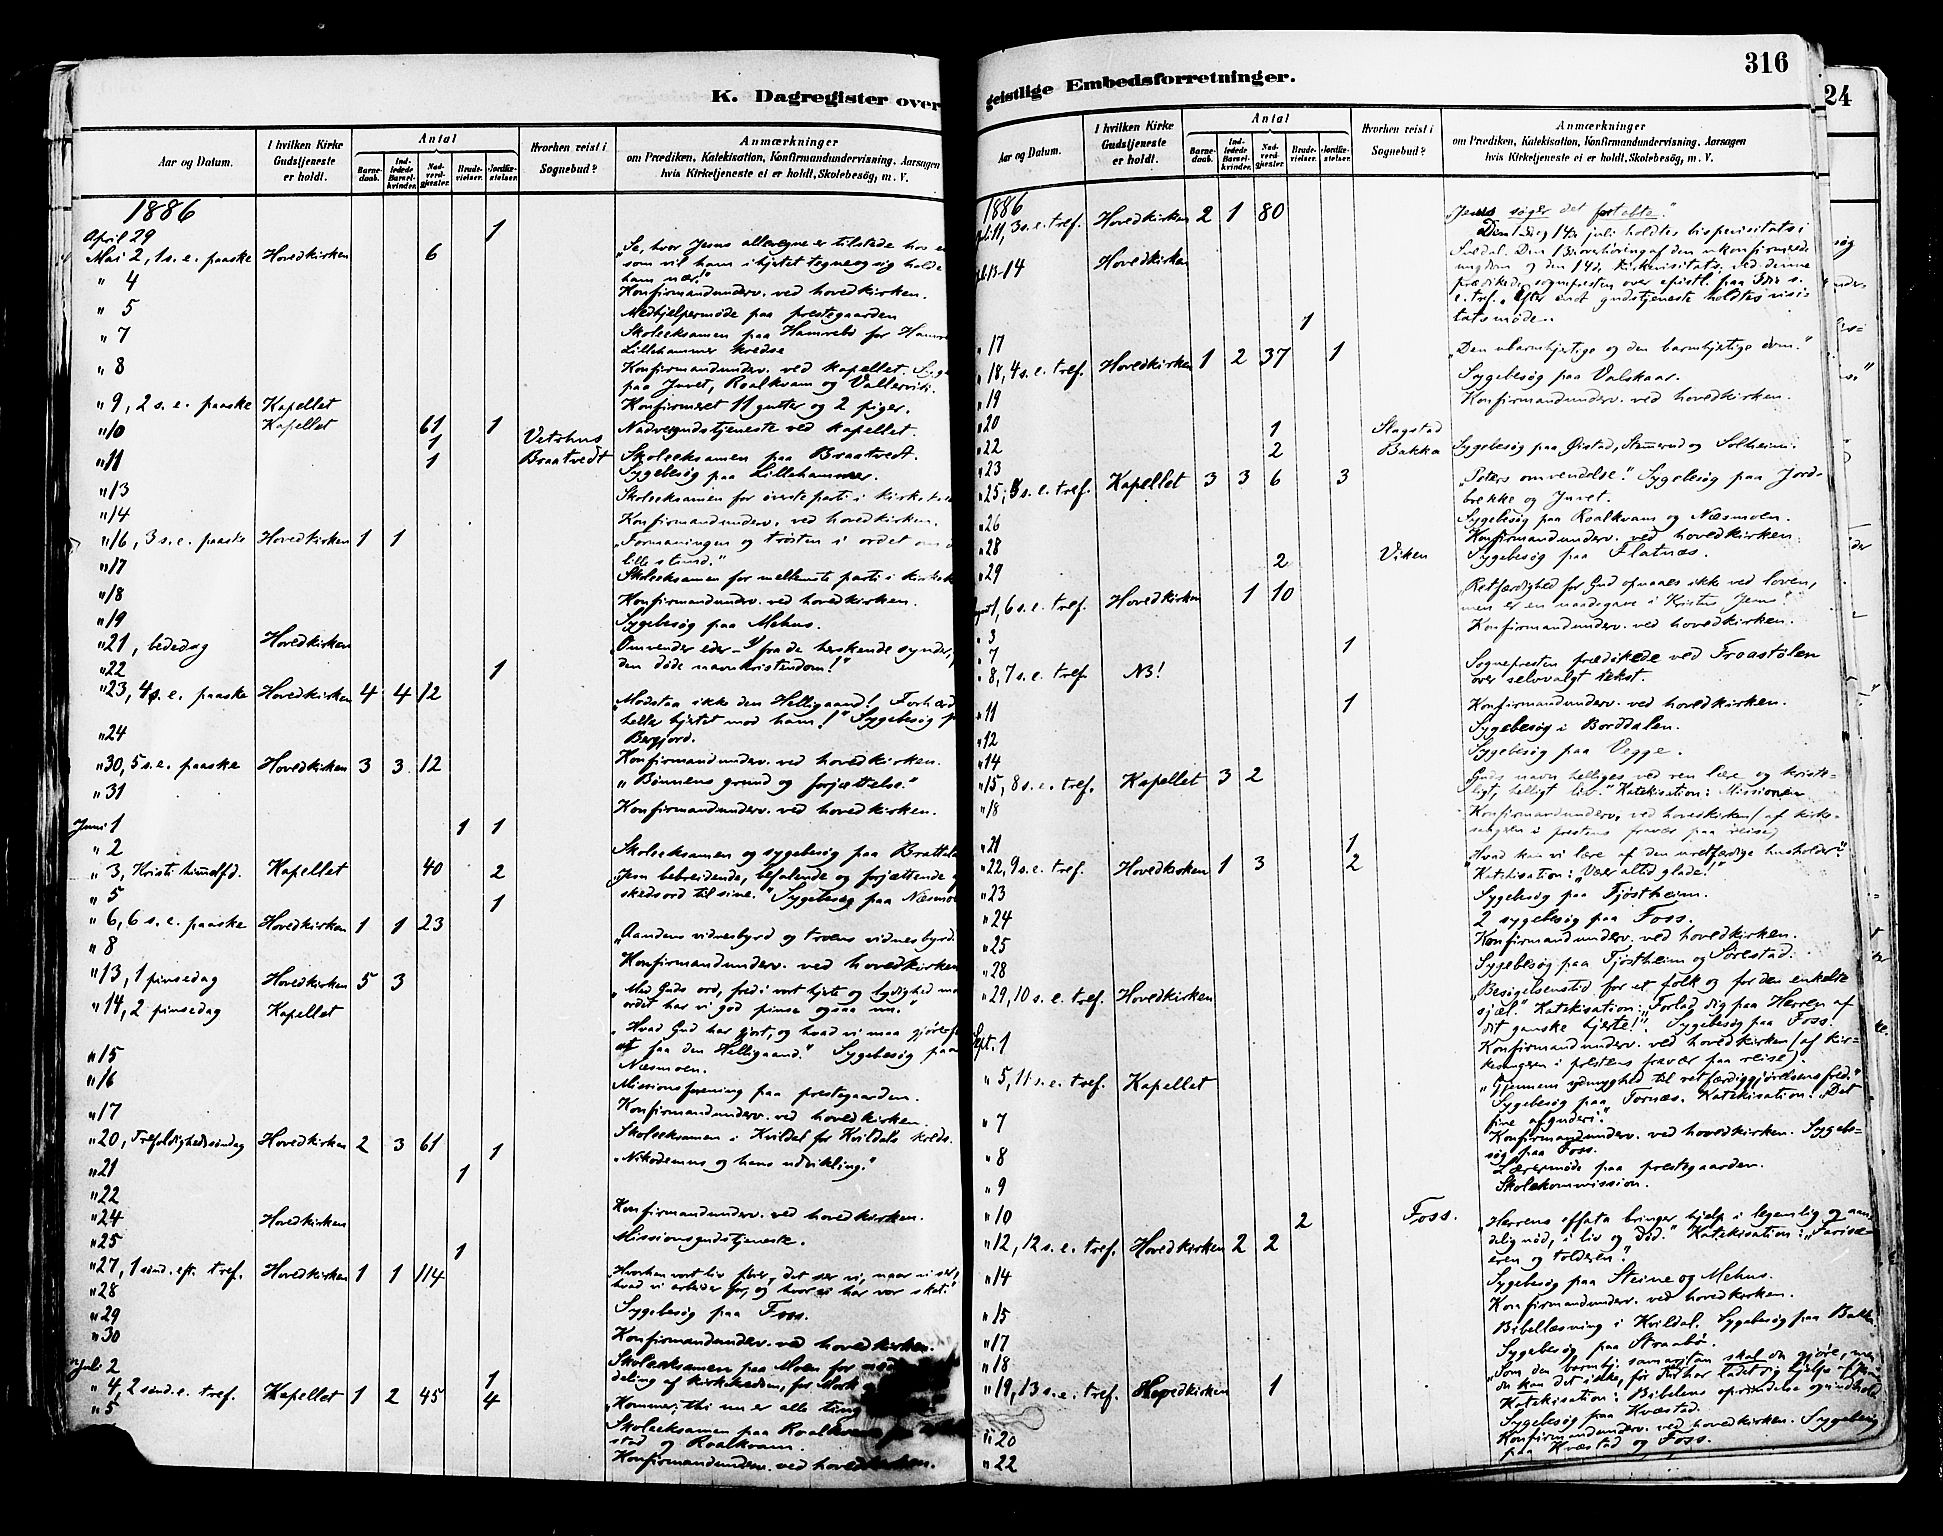 316
24
K. Dagregister over
geistlige Embedsforretninger.
Aar og Datum.
I hvilken Kirke Gudstjeneste er holdt.
Antal
Barnedaab.
Indledede Barselkvinder.
Nadverdgjester.
Brudevielser.
Jordfæstelser.
Hvorhen reist i Sognebud?
Anmærkninger
om Prædiken, Katekisation, Konfirmandundervisning. Aarsagen
hvis Kirketjeneste ei er holdt, Skolebesøg, m. V.
1886
April 29 1
Mai 2, 1 s. e. paaske Hovedkirken 6 „Se, hvor Jesus allevegne er tilstede hos
som vil ham i hjertet tegne og sig holde
ham nær!"
" 4 Konfirmandunderv. ved hovedkirken.
" 5 Medhjelpermøde paa prestegaarden
" 7 Skoleeksamen paa Hamrebø for
Lillehammer kredse
" 8 Konfirmandunderv. ved kapellet.
paa Juvet, Roalkvam og
" 9, 2 s. e. paaske Kapellet Konfirmeret 11 gutter og 2 piger.
" 10 Kapellet 61 1 Nadvergudstjeneste ved kapellet.
1 Vetrhus
" 11 1 Braatvedt Skoleeksamen paa Braatvedt.
Sygebesøg paa Lillehammer.
" 13 Skoleeksamen for øverste parti i
" 14 Konfirmandunderv. ved hovedkirken.
" 16, 3 s. e. paaske Hovedkirken 1 1 „Formaningen og trøsten i ordet om
lille stund."
" 17 Skoleeksamen for mellemste parti i
" 18 Konfirmandunderv. ved hovedkirken.
" 19 Sygebesøg paa Mehus.
" 21, bededag Hovedkirken „Omvender eder — fra de herskende synder,
den døde navnkristendom!"
" 22 1
" 23, 4 s. e. paaske Hovedkirken 4 4 12 „Modstaa ikke den Helligaand!
heller hjertet mod ham!" Sygebesøg
Bergjord.
" 24 Konfirmandunderv. ved hovedkirken.
" 30, 5 s. e. paaske Hovedkirken 3 3 12 „Bønnens grund og forjættelse"
" 31 Konfirmandunderv. ved hovedkirken.
Juni 1 1 1
" 2 Skoleeksamen og sygebesøg paa
" 3, Kristi himmelfd. Kapellet 40 2 Jesu bebreidende, befalende og forjættende
skedsord til sine." Sygebesøg paa
" 5 1
" 6, 6 s. e. paaske Hovedkirken 1 1 23 „Aandens vidnesbyrd og troens vidnesbyrd.
" 8 Konfirmandunderv. ved hovedkirken
" 13, 1 pinsedag Hovedkirken 5 3 „Med Guds ord, fred i vort hjerte og lydighed mod
ordet har vi god pinse ogsaa nu."
" 14, 2 pinsedag Kapellet „Hvad Gud har gjort, og hvad vi maa gjøre
faa den Helligaand." Sygebesøg paa
Næsmoen.
" 15
" 16 Missionsforening paa prestegaarden.
" 17 Konfirmandunderv. ved hovedkirken.
Skoleeksamen i Kvildal for Kvildals kreds.
" 20, Trefoldighedssøndag Hovedkirken 2 3 61 1 „Nikodemus og hans udvikling."
" 21 1
" 22 Konfirmandunderv. ved hovedkirken.
" 24 Hovedkirken Missionsgudstjeneste.
" 25 1
" 27, 1 sønd. eft. tref. Hovedkirken 1 1 114 „Hvorhen vort liv fører, det ser vi, naar vi ser,
hvad vi arbeider for, og hvor vi har vor skat."
" 28 Sygebesøg paa Foss.
" 29
" 30 Konfirmandunderv. ved hovedkirken.
Juli 2 1 Skoleeksamen paa Moen for
deling af kirkekredsen, for
" 4, 2 sønd. e. tref. Kapellet 1 2 45 4 „Kommer, thi nu er alle ting
" 5 Skoleeksamen paa Roalkvam
stad og Roalkvam.
Konfirmandunderv. ved hovedkirken.
Aar og Datum.
I hvilken Kirke Gudstjeneste er holdt.
Antal
Barnedaab.
Indledede Barselkvinder.
Nadverdgjester.
Brudevielser.
Jordfæstelser.
Hvorhen reist i Sognebud?
Anmærkninger
om Prædiken, Katekisation, Konfirmandundervisning. Aarsagen
hvis Kirketjeneste ei er holdt, Skolebesøg, m. V.
1886
Juli 11, 3 s. e. tref. Hovedkirken 2 1 80 Jesus søger det fortabte."
Juli 13-14 Hovedkirken Den 13de og 14de juli holdtes bispevisitats i
Suldal. Den 13de overhøring af den ukonfirmerede
ungdom og den 14de kirkevisitats; ved denne
prædikede sognepresten over epistl. paa 3die s.
e. tref. Efter endt gudstjeneste holdtes visi-
tatsmøde.
" 17 1
" 18, 4 s. e. tref. Hovedkirken 1 2 37 1 „Den ubarmhjertige og den barmhjertige dom."
" 19 Sygebesøg paa Valskaar.
" 20 Konfirmandunderv. ved hovedkirken.
" 22 1 Slagstad
" 23 2 Bakka Sygebesøg paa Ørstad, Stemmerud og Solheim.
" 25, 5 s. e. tref. Kapellet 3 3 6 3 „Peters omvendelse." Sygebesøg paa Jord-
brekke og Juvet.
" 26 Sygebesøg paa Roalkvam og Næsmoen.
" 28 Konfirmandunderv. ved hovedkirken.
" 29 2 Viken Sygebesøg paa Flatnæs.
August 1, 6 s. e. tref. Hovedkirken 1 10 „Retfærdighed for Gud opnaaes ikke ved loven,
men er en naadegave i Kristus Jesus."
" 3 Konfirmandunderv. ved hovedkirken.
" 7 1
" 8, 7 s. e. tref. NB! Sognepresten prædikede ved Froastølen
over selvvalgt tekst.
" 11 1 Konfirmandunderv. ved hovedkirken.
" 12 Sygebesøg i Borddalen.
" 14 Sygebesøg paa Vegge.
" 15, 8 s. e. tref. Kapellet 3 2 „Guds navn helliges ved ren lære og kriste-
ligt, helligt liv." Katekisation: Missionen
" 18 Konfirmandunderv. ved hovedkirken (af kirke-
sangeren i prestens fravær paa reise)
" 21 1
" 22, 9 s. e. tref. Hovedkirken 1 3 2 „Hvad kan vi lære af den uretfærdige husholder"?
Katekisation: „Vær altid glade!"
" 23 Sygebesøg paa Fjøstheim.
" 24 2 sygebesøg paa Foss.
" 25 Konfirmandunderv. ved hovedkirken.
" 28 Sygebesøg paa Fjøstheim og Sørestad.
" 29, 10 s. e. tref. Hovedkirken „Besøgelsestid for et folk og for den enkelte
sjæl." Katekisation: „Forlad dig paa Herren af
dit ganske hjerte!" Sygebesøg paa Foss.
Sept. 1 Konfirmandunderv. ved hovedkirken (af kir-
kesangeren i prestens fravær paa reise).
" 5, 11 s. e. tref. Kapellet „Gjennem ydmyghed til retfærdiggjørelsens fred."
Sygebesøg paa Tornæs. Katekisation: „Det
fine afguderi."
" 7 Konfirmandunderv. ved hovedkirken. Sygebe-
søg paa Foss.
" 8 Lærermøde paa prestegaarden.
" 9 Skolekommission.
" 10 2 Foss.
" 12, 12 s. e. tref. Hovedkirken 2 2 „Herrens effata bringer hjælp i legemlig og aan-
delig nød, i liv og død." Katekisation: „Farisæ-
eren og tolderen."
" 14 Sygebesøg paa Steine og Mehus.
" 15 Konfirmandunderv. ved hovedkirken.
" 17 Bibellæsning i Kvildal. Sygebesøg paa
" 18 Sygebesøg paa Straabø.
" 19, 13 s. e. tref. Hovedkirken 1 „Som den barmhj. samaritan skal du gjøre, men
du kan det ikke, før du har ladet dig hjælpe af
Katekisation: Bibelens oprindelse og indhold
Sygebesøg paa Kvæstad.
" 20 Konfirmandunderv. ved hovedkirken. Sygebesøg
" 22 paa Kvæstad og Foss.